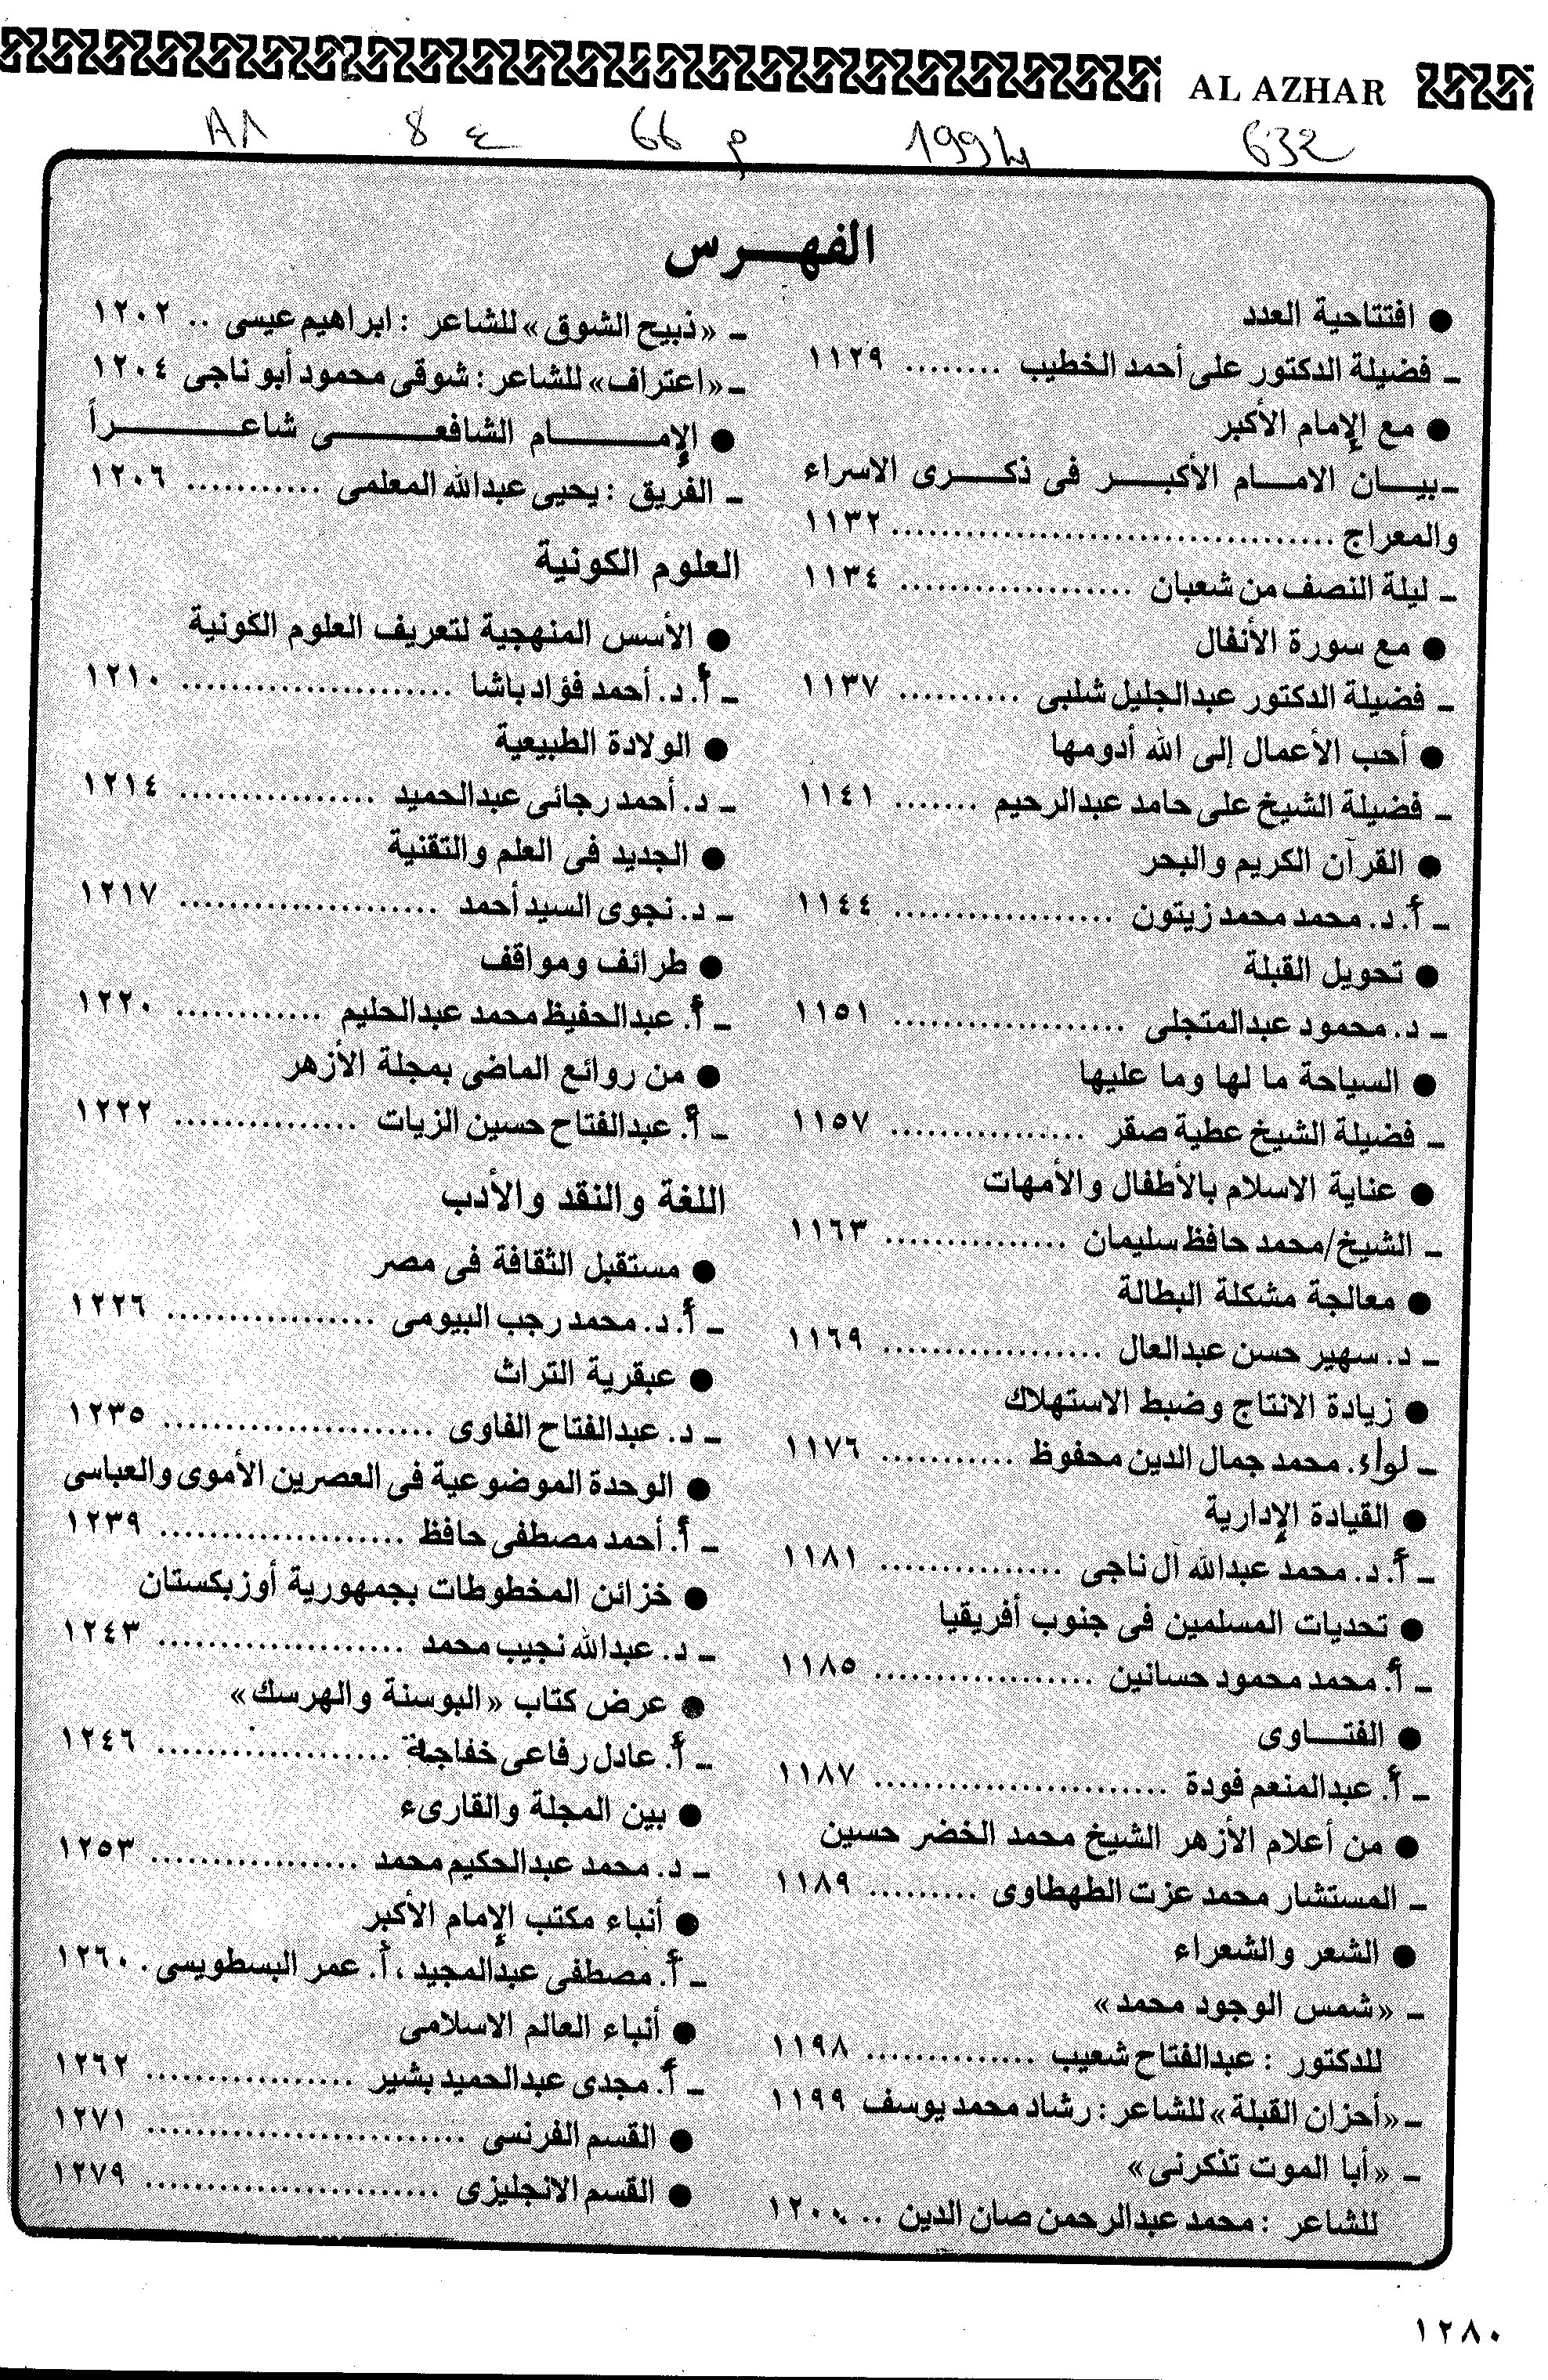 AL AZHAR
632 199 م 66 ع 8
الفهرس
● افتتاحية العدد
ـ فضيلة الدكتور على أحمد الخطيب ........ ١١٢٩
● مع الإمام الأكبر
ـ بيان الامام الأكبر فى ذكرى الاسراء
والمعراج ........ ١١٣٢
ـ ليلة النصف من شعبان ........ ١١٣٤
● مع سورة الأنفال
ـ فضيلة الدكتور عبدالجليل شلبى ........ ١١٣٧
● أحب الأعمال إلى الله أدومها
ـ فضيلة الشيخ على حامد عبدالرحيم ....... ١١٤١
● القرآن الكريم والبحر
ـ أ. د. محمد محمد زيتون ........ ١١٤٤
● تحويل القبلة
ـ د. محمود عبدالمتجلى ........ ١١٥١
● السياحة ما لها وما عليها
ـ فضيلة الشيخ عطية صقر ........ ١١٥٧
● عناية الاسلام بالأطفال والأمهات
ـ الشيخ/محمد حافظ سليمان ........ ١١٦٣
● معالجة مشكلة البطالة
ـ د. سهير حسن عبدالعال ........ ١١٦٩
● زيادة الانتاج وضبط الاستهلاك
ـ لواء. محمد جمال الدين محفوظ ........ ١١٧٦
● القيادة الإدارية
ـ أ. د. محمد عبدالله آل ناجى ........ ١١٨١
● تحديات المسلمين فى جنوب أفريقيا
ـ أ. محمد محمود حسانين ........ ١١٨٥
● الفتاوى
ـ أ. عبدالمنعم فودة ........ ١١٨٧
● من أعلام الأزهر الشيخ محمد الخضر حسين
ـ المستشار محمد عزت الطهطاوى ........ ١١٨٩
● الشعر والشعراء
ـ «شمس الوجود محمد»
للدكتور : عبدالفتاح شعيب ........ ١١٩٨
ـ «أحزان القبلة» للشاعر : رشاد محمد يوسف ١١٩٩
ـ «أبا الموت تذكرنى»
للشاعر : محمد عبدالرحمن صان الدين .. ١٢٠٠
ـ «ذبيح الشوق» للشاعر : ابراهيم عيسى .. ١٢٠٢
ـ «اعتراف» للشاعر : شوقى محمود أبو ناجى ١٢٠٤
● الإمام الشافعى شاعراً
ـ الفريق : يحيى عبدالله المعلمى ........ ١٢٠٦
العلوم الكونية
● الأسس المنهجية لتعريف العلوم الكونية
ـ أ. د. أحمد فؤاد باشا ........ ١٢١٠
● الولادة الطبيعية
ـ د. أحمد رجائى عبدالحميد ........ ١٢١٤
● الجديد فى العلم والتقنية
ـ د. نجوى السيد أحمد ........ ١٢١٧
● طرائف ومواقف
ـ أ. عبدالحفيظ محمد عبدالحليم ........ ١٢٢٠
● من روائع الماضى بمجلة الأزهر
ـ أ. عبدالفتاح حسين الزيات ........ ١٢٢٢
اللغة والنقد والأدب
● مستقبل الثقافة فى مصر
ـ أ. د. محمد رجب البيومى ........ ١٢٢٦
● عبقرية التراث
ـ د. عبدالفتاح الفاوى ........ ١٢٣٥
● الوحدة الموضوعية فى العصرين الأموى والعباسى
ـ أ. أحمد مصطفى حافظ ........ ١٢٣٩
● خزائن المخطوطات بجمهورية أوزبكستان
ـ د. عبدالله نجيب محمد ........ ١٢٤٣
● عرض كتاب «البوسنة والهرسك»
ـ أ. عادل رفاعى خفاجة ........ ١٢٤٦
● بين المجلة والقارىء
ـ د. محمد عبدالحكيم محمد ........ ١٢٥٣
● أنباء مكتب الإمام الأكبر
ـ أ. مصطفى عبدالمجيد ، أ. عمر البسطويسى . ١٢٦٠
● أنباء العالم الاسلامى
ـ أ. مجدى عبدالحميد بشير ........ ١٢٦٢
● القسم الفرنسى ........ ١٢٧١
● القسم الانجليزى ........ ١٢٧٩
١٢٨٠